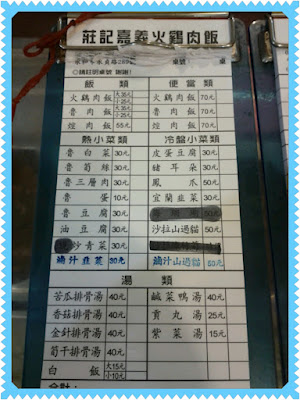 莊記嘉義火鷄肉飯
永和市永貞路 桌號 桌
◎請註明桌號 謝謝!
飯類 便當類
火鷄肉飯 大35元 小25元 火鷄肉飯 70元
魯肉飯 大35元 小25元 魯肉飯 70元
焢肉飯 55元 焢肉飯 70元
熱小菜類 冷盤小菜類
魯白菜 30元 皮蛋豆腐 30元
魯筍絲 30元 豬耳朵 30元
魯三層肉 30元 鳳爪 50元
魯蛋 10元 宜蘭韮菜 30元
魯豆腐 30元 50元
油豆腐 30元 沙拉山過貓 50元
炒青菜 30元
滷汁韮菜 30元 滷汁山過貓 50元
湯類
苦瓜排骨湯 40元 鹹菜鴨湯 40元
香菇排骨湯 40元 貢丸湯 25元
金針排骨湯 40元 紫菜湯 15元
筍干排骨湯 40元
白飯 大15元 小10元
合計: